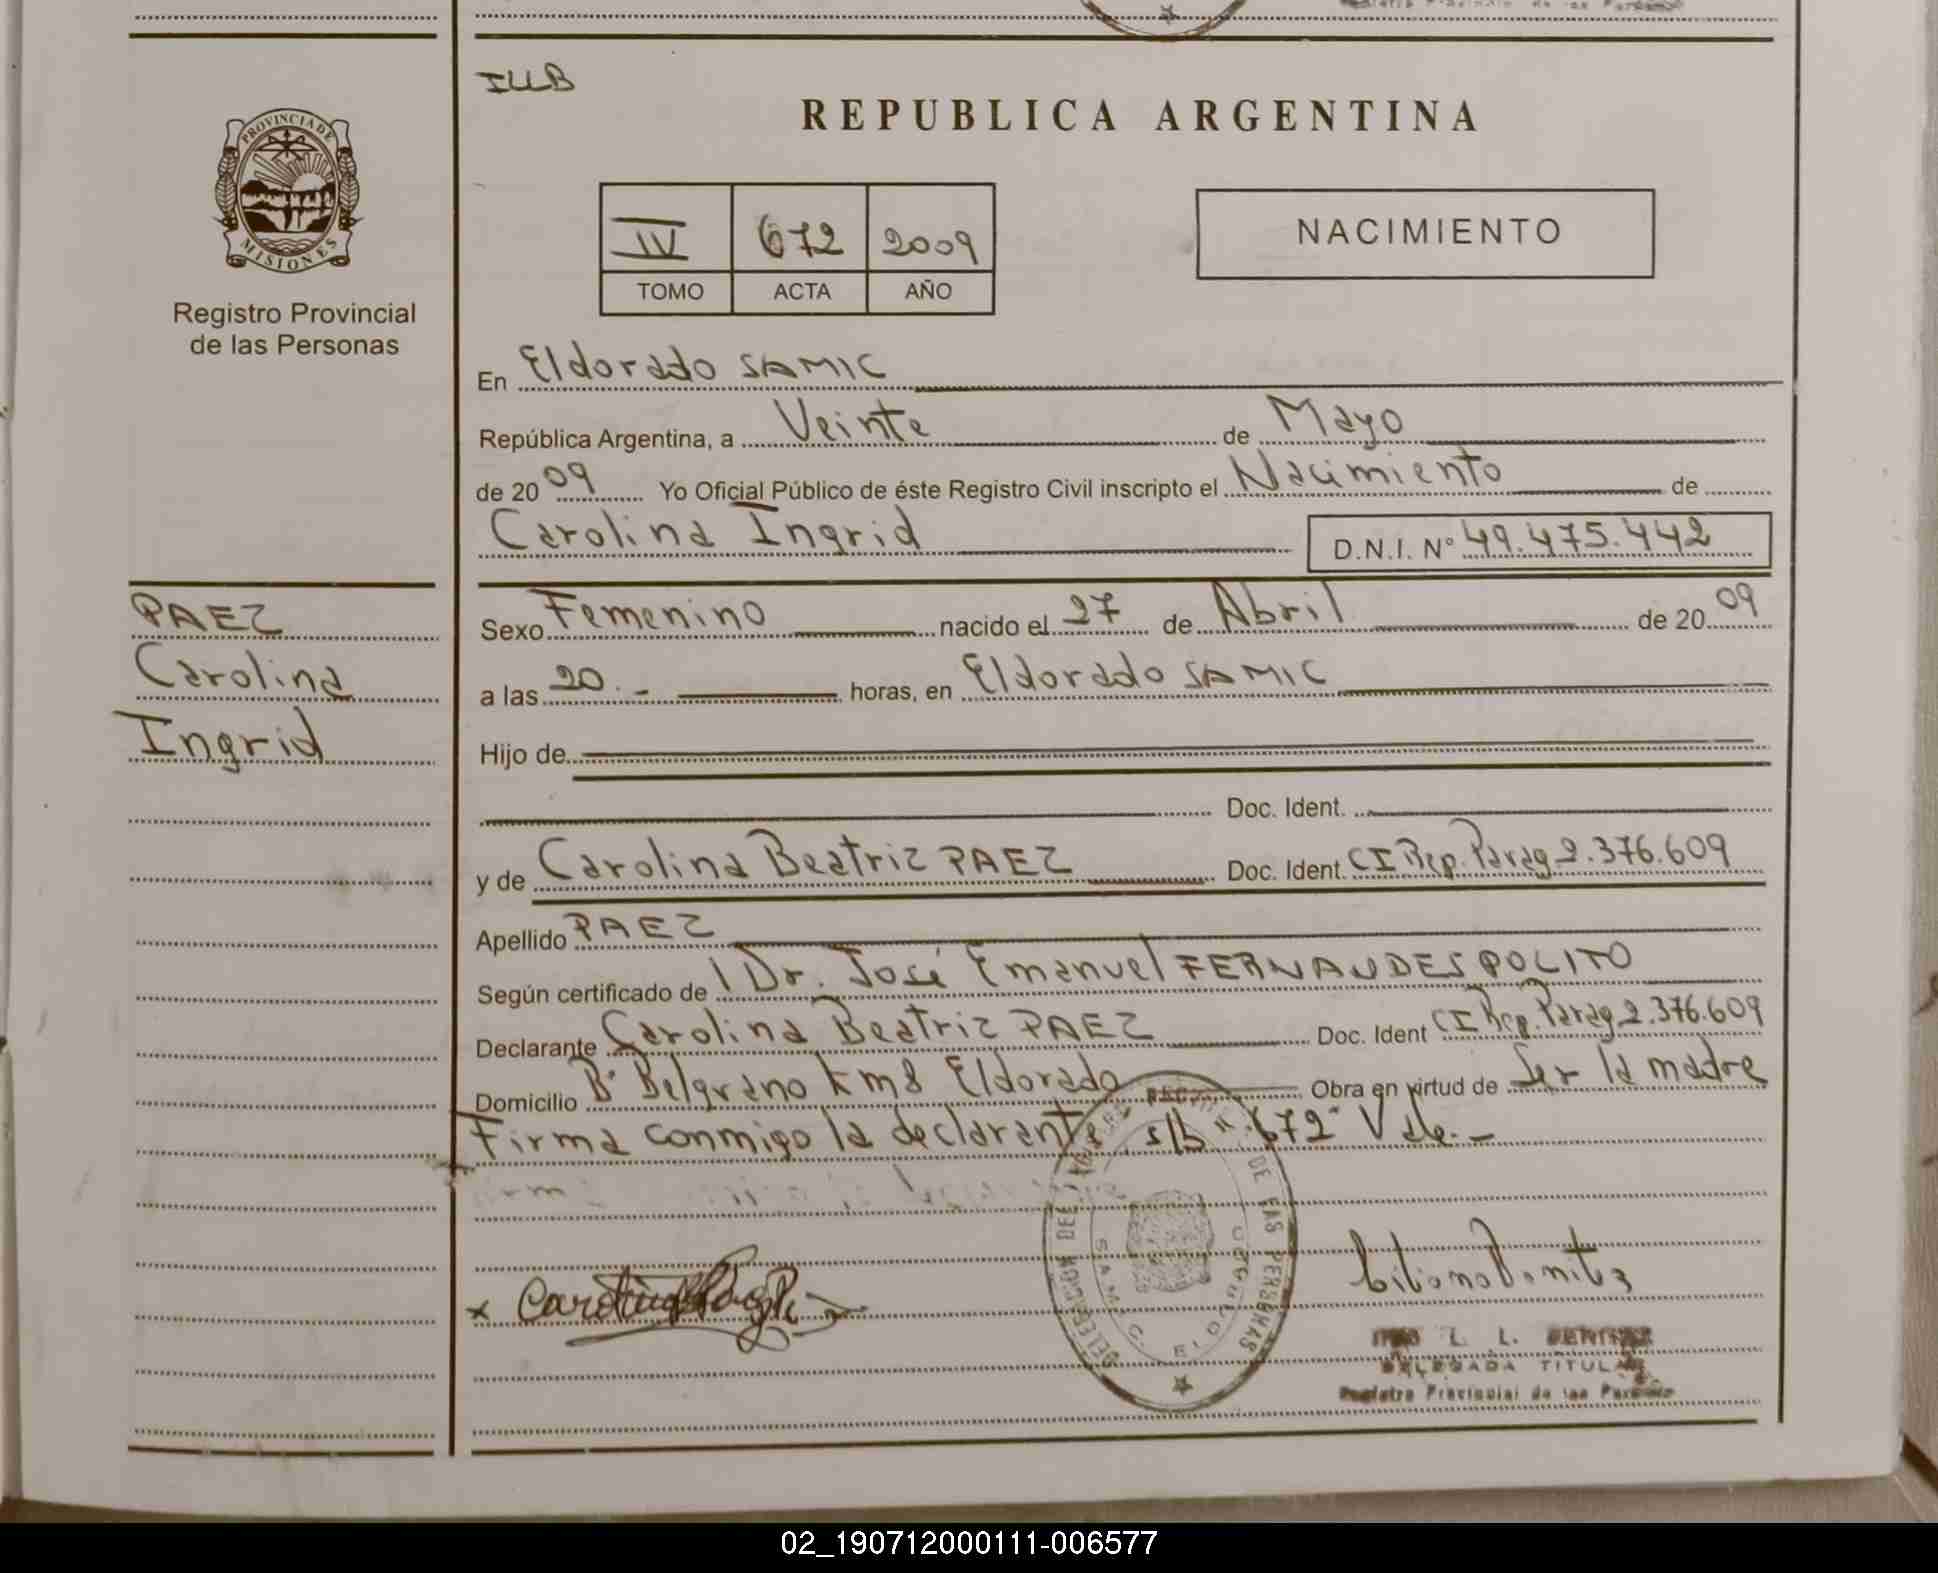 ILLB
REPUBLICA ARGENTINA
PROVINCIA DE
MISIONES
Registro Provincial
de las Personas
IV 672 2009
TOMO ACTA AÑO
NACIMIENTO
En Eldorado SAMIC
República Argentina, a Veinte de Mayo
de 2009 Yo Oficial Público de éste Registro Civil inscripto el Nacimiento de
Carolina Ingrid D.N.I. N° 49.475.442
PAEZ
Carolina
Ingrid
Sexo Femenino nacido el 27 de Abril de 2009
a las 20.- horas, en Eldorado SAMIC
Hijo de
Doc. Ident.
y de Carolina Beatriz PAEZ Doc. Ident. CI Rep. Parag 2.376.609
Apellido PAEZ
Según certificado de Dr. José Emanuel FERNANDES POLITO
Declarante Carolina Beatriz PAEZ Doc. Ident CI Rep. Parag 2.376.609
Domicilio B° Belgrano km 8 Eldorado Obra en virtud de Ser la madre
Firma conmigo la declarante s/b "672" Vale.-
DELEGACION DEL REGISTRO DE LAS PERSONAS
S.A.M.I.C.
L. L. BENITEZ
DELEGADA TITULAR
Registro Provincial de las Personas
02_190712000111-006577